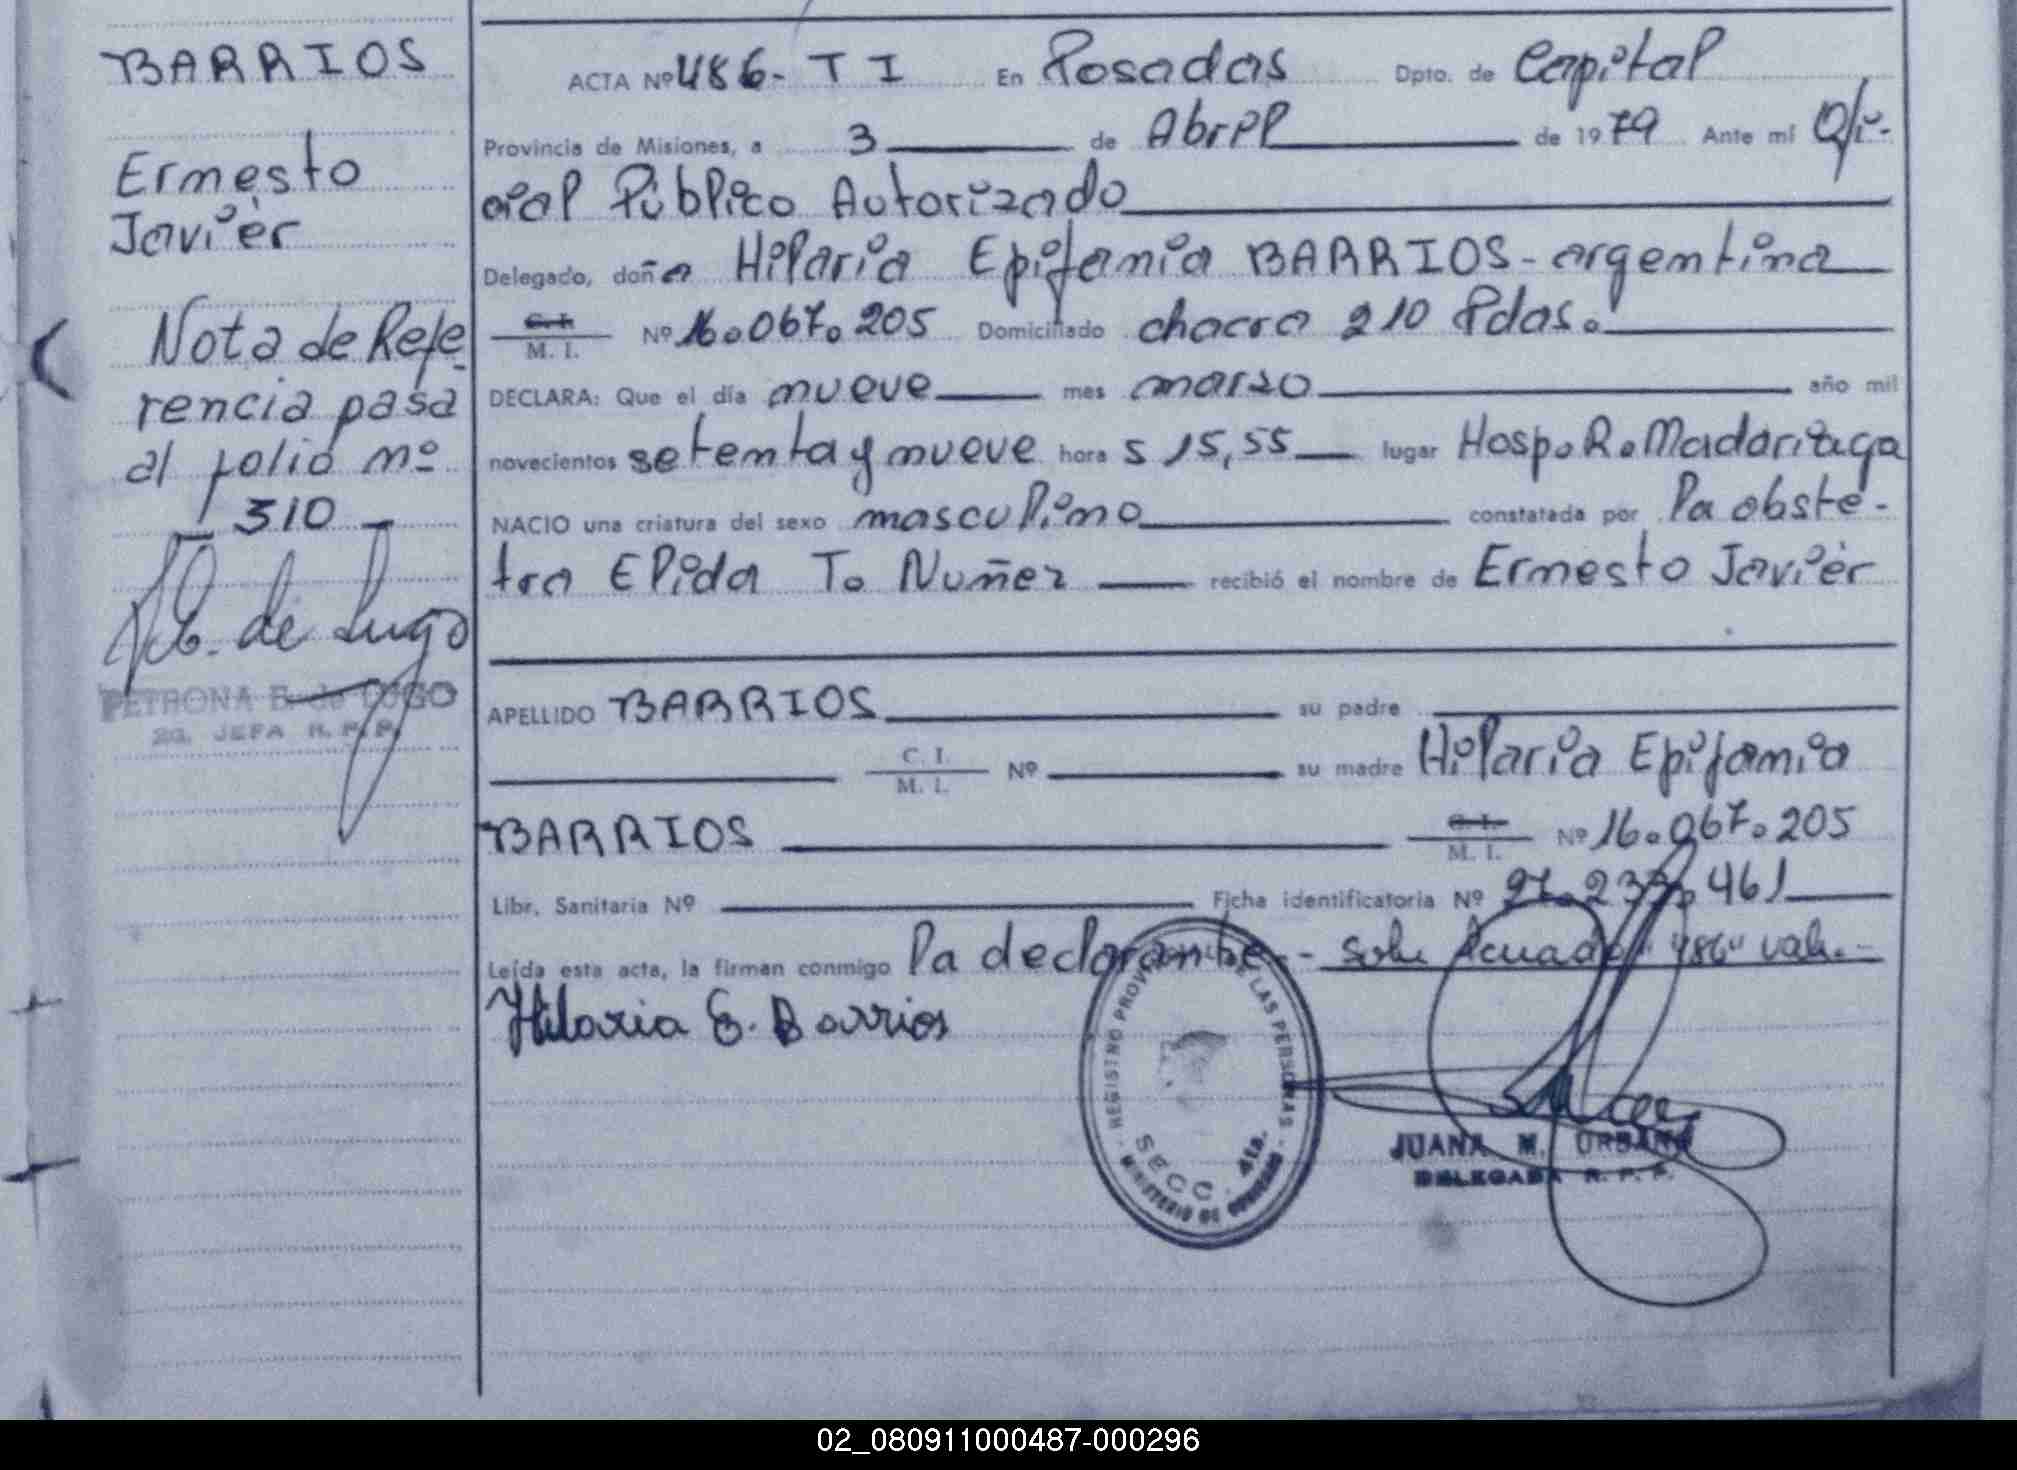 BARRIOS
Ernesto
Javier
Nota de Refe-
rencia pasa
al folio nº
310
PETRONA B. de LUGO
2a. JEFA R. P. P.
ACTA Nº 486- T I En Posadas Dpto. de Capital
Provincia de Misiones, a 3 de Abril de 1979 Ante mí Ofi-
cial Público Autorizado
Delegado, doña Hilaria Epifania BARRIOS - argentina
C. I.
M. I. Nº 16.067.205 Domiciliado chacra 210 Pdas.
DECLARA: Que el día nueve mes marzo año mil
novecientos setenta y nueve hora s 15,55 lugar Hosp. R. Madariaga
NACIO una criatura del sexo masculino constatada por la obste-
tra Elida T. Nuñez recibió el nombre de Ernesto Javier
APELLIDO BARRIOS su padre
C. I.
M. I. Nº su madre Hilaria Epifania
BARRIOS C. I.
M. I. Nº 16.067.205
Libr. Sanitaria Nº Ficha identificatoria Nº 27.233.461
Leída esta acta, la firman conmigo la declarante.-
Hilaria E. Barrios
REGISTRO PROVINCIAL DE LAS PERSONAS
SECC. 4ta.
MINISTERIO DE GOBIERNO
JUANA M. URBANO
DELEGADA R. P. P.
02_080911000487-000296